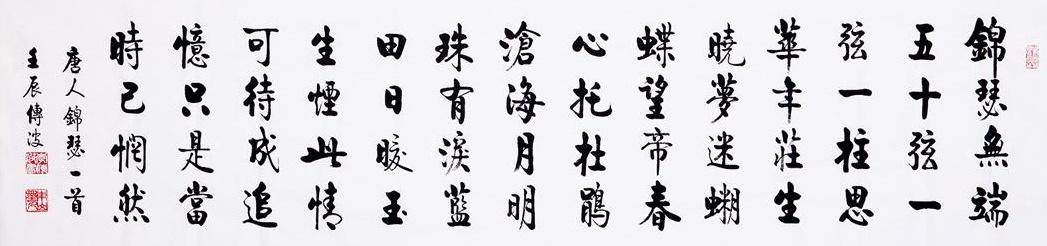 錦瑟無端
五十弦一
弦一柱思
華年莊生
曉夢迷蝴
蝶望帝春
心托杜鵑
滄海月明
珠有淚藍
田日暖玉
生煙此情
可待成追
憶只是當
時已惘然
唐人錦瑟一首
壬辰傳波